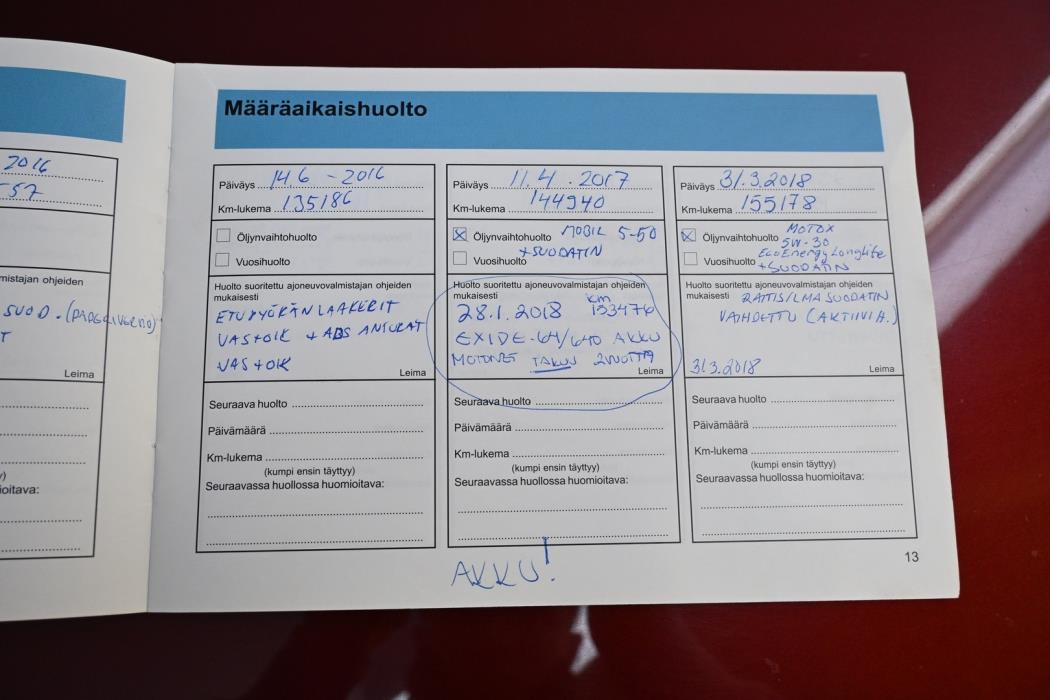 2016
57
mistajan ohjeiden
SUOD.
Leima
ioitava:
Määräaikaishuolto
Päiväys 14.6 - 2016
Km-lukema 135186
Öljynvaihtohuolto
Vuosihuolto
Huolto suoritettu ajoneuvovalmistajan ohjeiden
mukaisesti
ETUPYÖRÄN LAAKERIT
VAS+OIK + ABS ANTURAT
VAS+OIK
Leima
Seuraava huolto
Päivämäärä
Km-lukema
(kumpi ensin täyttyy)
Seuraavassa huollossa huomioitava:
Päiväys 11.4.2017
Km-lukema 144940
Öljynvaihtohuolto MOBIL 5-50
+SUODATIN
Vuosihuolto
Huolto suoritettu ajoneuvovalmistajan ohjeiden
mukaisesti
28.1.2018 km 153476
EXIDE-64/640 AKKU
MOTONET TAKUU 2VUOTTA
Leima
Seuraava huolto
Päivämäärä
Km-lukema
(kumpi ensin täyttyy)
Seuraavassa huollossa huomioitava:
AKKU!
Päiväys 31.3.2018
Km-lukema 155178
MOTOX
Öljynvaihtohuolto 5W-30
EcoEnergy Longlife
Vuosihuolto +SUODATIN
Huolto suoritettu ajoneuvovalmistajan ohjeiden
mukaisesti RAITIS/LMA SUODATIN
VAIHDETTU (AKTIIVIH.)
31.3.2018 Leima
Seuraava huolto
Päivämäärä
Km-lukema
(kumpi ensin täyttyy)
Seuraavassa huollossa huomioitava:
13